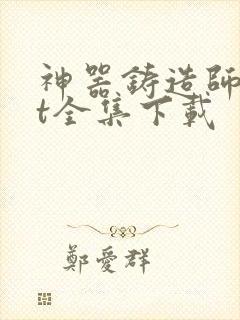 神器鋳造師
t全集下載
鄭愛群